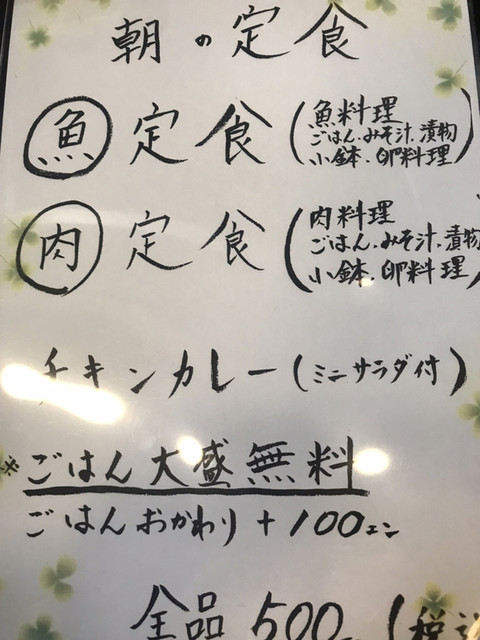 朝の定食
魚定食(魚料理
ごはん.みそ汁.漬物
小鉢.卵料理)
肉定食(肉料理
ごはん.みそ汁.漬物
小鉢.卵料理)
チキンカレー(ミニサラダ付)
※ごはん大盛無料
ごはんおかわり+100エン
全品500(税込